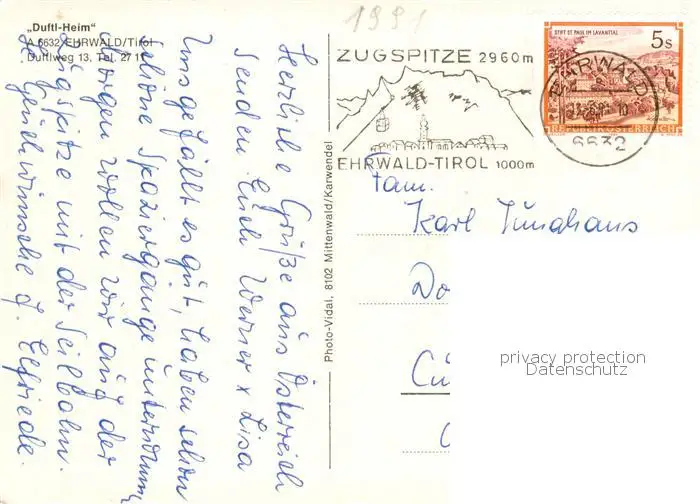 1991
„Duftl-Heim"
A 6632 EHRWALD/Tirol
Duftlweg 13, Tel. 27 1
Herzliche Grüße aus Österreich
senden Euch Werner x Lisa
Uns gefällt es gut, haben schon
schöne Spaziergänge unternomm
Morgen wollen wir auf der
Zugspitze mit der Seilbahn.
J. Elfriede.
Photo-Vidal, 8102 Mittenwald/Karwendel
ZUGSPITZE 2960m
EHRWALD-TIROL 1000m
STIFT ST. PAUL IM LAVANTTAL
5s
REPUBLIK ÖSTERREICH
EHRWALD
6632
Fam.
Karl Junghans
Do
Cü
privacy protection
Datenschutz